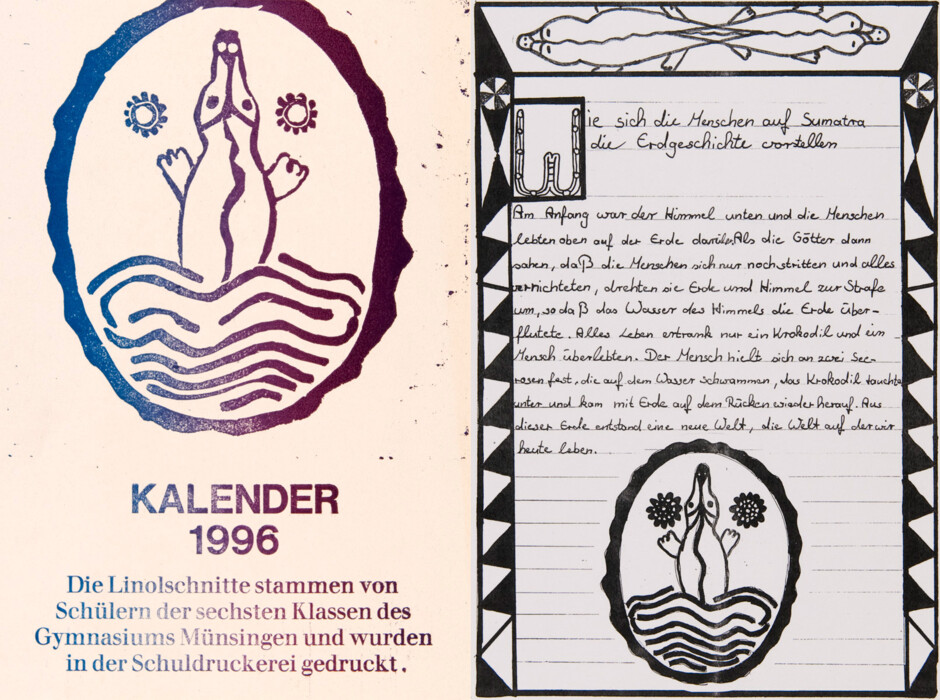 KALENDER
1996
Die Linolschnitte stammen von
Schülern der sechsten Klassen des
Gymnasiums Münsingen und wurden
in der Schuldruckerei gedruckt.
Wie sich die Menschen auf Sumatra
die Erdgeschichte vorstellen
Am Anfang war der Himmel unten und die Menschen
lebten oben auf der Erde darüber. Als die Götter dann
sahen, daß die Menschen sich nur noch stritten und alles
vernichteten, drehten sie Erde und Himmel zur Strafe
um, so daß das Wasser des Himmels die Erde über-
flutete. Alles Leben ertrank nur ein Krokodil und ein
Mensch überlebten. Der Mensch hielt sich an zwei See-
rosen fest, die auf dem Wasser schwammen, das Krokodil tauchte
unter und kam mit Erde auf dem Rücken wieder herauf. Aus
dieser Erde entstand eine neue Welt, die Welt auf der wir
heute leben.